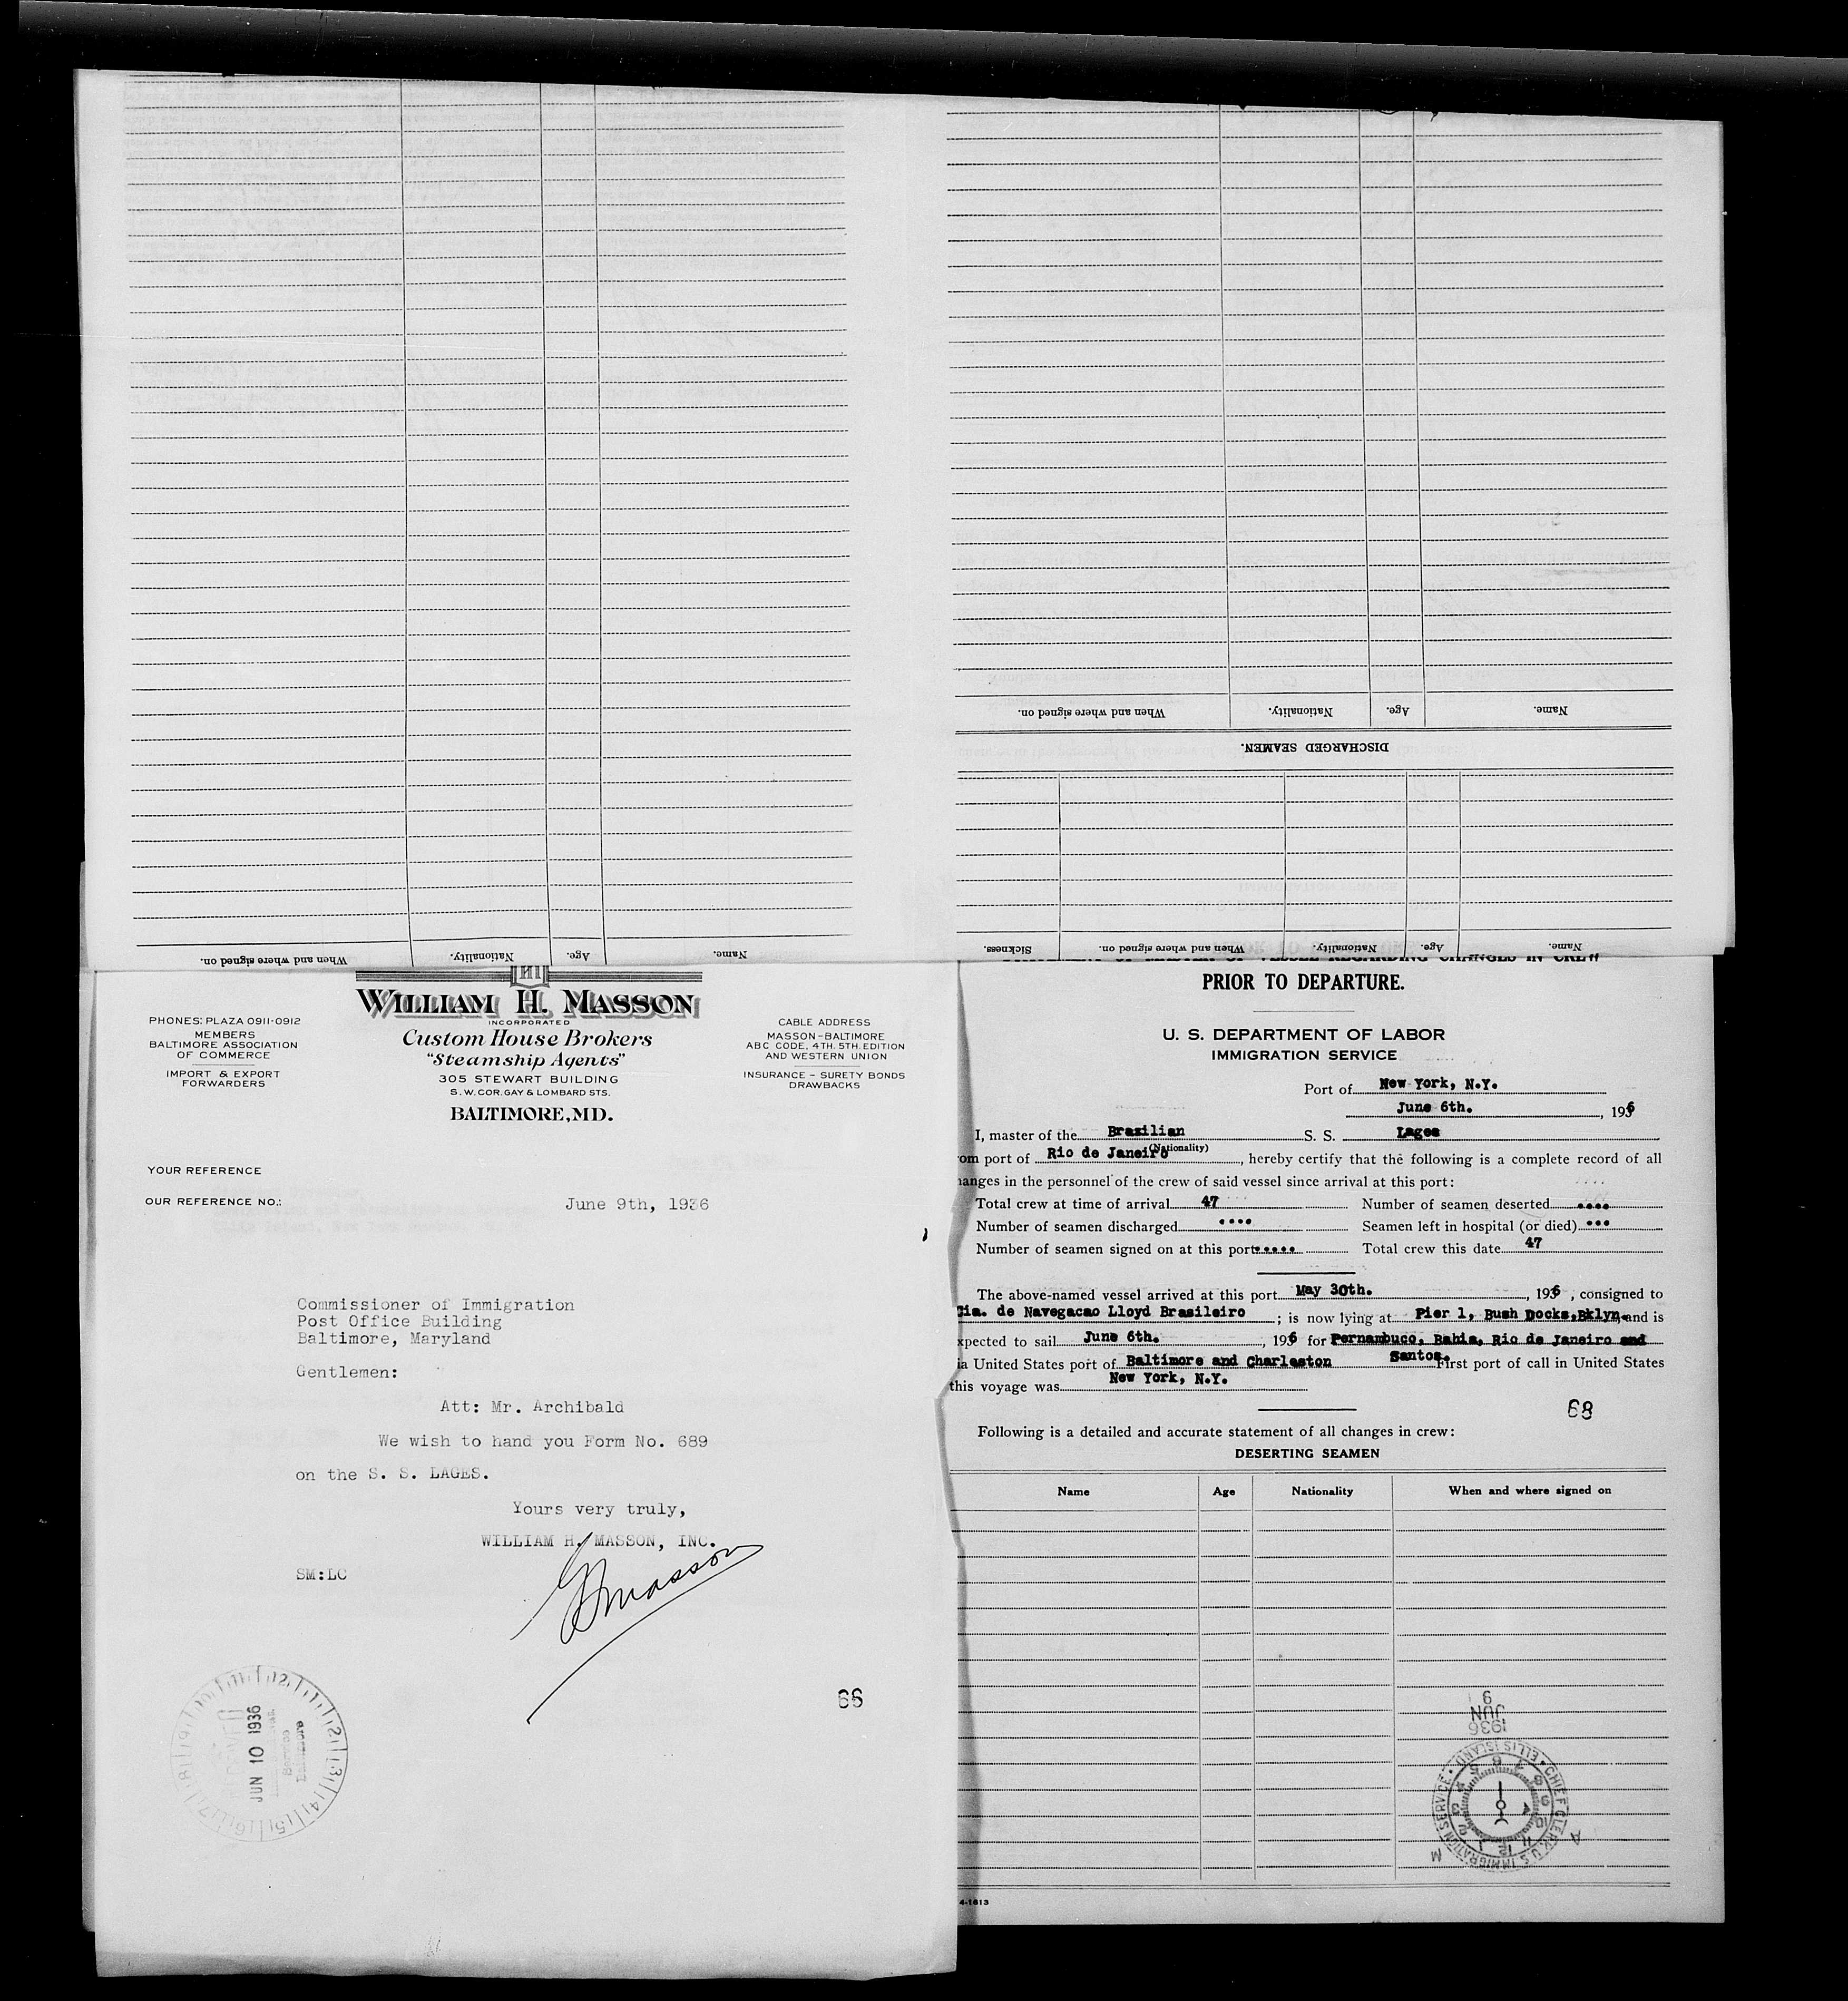 When and where signed on.
Nationality.
Age.
Name.
Name.
Age.
Nationality.
When and where signed on.
DISCHARGED SEAMEN.
Sickness.
When and where signed on.
Nationality.
Age.
Name.
WILLIAM H. MASSON
INCORPORATED
Custom House Brokers
"Steamship Agents"
305 STEWART BUILDING
S.W. COR. GAY & LOMBARD STS.
BALTIMORE, MD.
PHONES: PLAZA 0911-0912
MEMBERS
BALTIMORE ASSOCIATION
OF COMMERCE
IMPORT & EXPORT
FORWARDERS
CABLE ADDRESS
MASSON-BALTIMORE
ABC CODE, 4TH. 5TH. EDITION
AND WESTERN UNION
INSURANCE - SURETY BONDS
DRAWBACKS
YOUR REFERENCE
OUR REFERENCE NO.:
June 9th, 1936
Commissioner of Immigration
Post Office Building
Baltimore, Maryland
Gentlemen:
Att: Mr. Archibald
We wish to hand you Form No. 689
on the S. S. LAGES.
Yours very truly,
WILLIAM H. MASSON, INC.
Masson
SM:LC
66
JUN 10 1936
Service
Baltimore
REGARDING CHANGES IN CREW
PRIOR TO DEPARTURE.
U. S. DEPARTMENT OF LABOR
IMMIGRATION SERVICE
Port of New York, N.Y.
June 6th. , 1936
I, master of the Brazilian S. S. Lages
(Nationality)
om port of Rio de Janeiro, hereby certify that the following is a complete record of all
hanges in the personnel of the crew of said vessel since arrival at this port:
Total crew at time of arrival 47 Number of seamen deserted ....
Number of seamen discharged .... Seamen left in hospital (or died) ...
Number of seamen signed on at this port ..... Total crew this date 47
The above-named vessel arrived at this port May 30th. , 1936 , consigned to
Cia. de Navegacao Lloyd Brasileiro ; is now lying at Pier 1, Bush Docks, Bklyn. and is
xpected to sail June 6th. , 1936 for Pernambuco, Bahia, Rio de Janeiro and
Santos.
ia United States port of Baltimore and Charleston First port of call in United States
this voyage was New York, N.Y.
68
Following is a detailed and accurate statement of all changes in crew:
DESERTING SEAMEN
Name Age Nationality When and where signed on
9
JUN
1936
CHIEF CLERK, U.S. IMMIGRATION SERVICE • ELLIS ISLAND •
A M
4-1613